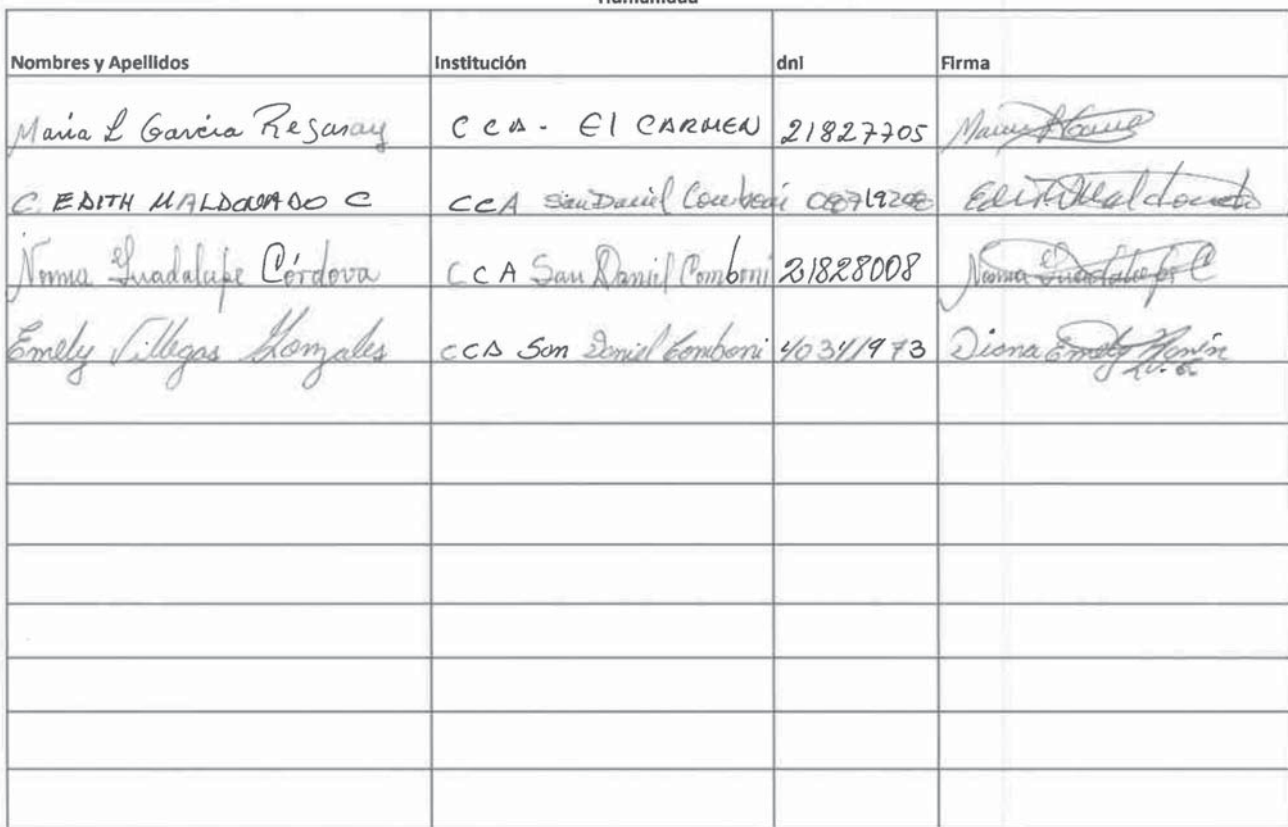 Humanidad
Nombres y Apellidos Institución dni Firma
Maria L Garcia CCA - El CARMEN 21827705
C. EDITH MALDONADO C CCA San Daniel Comboni Edith Maldonado
Norma Guadalupe Córdova CCA San Daniel Comboni 21828008 Norma Guadalupe C
Emely Villegas Gonzales CCA San Daniel Comboni 40341973 Diana Emely